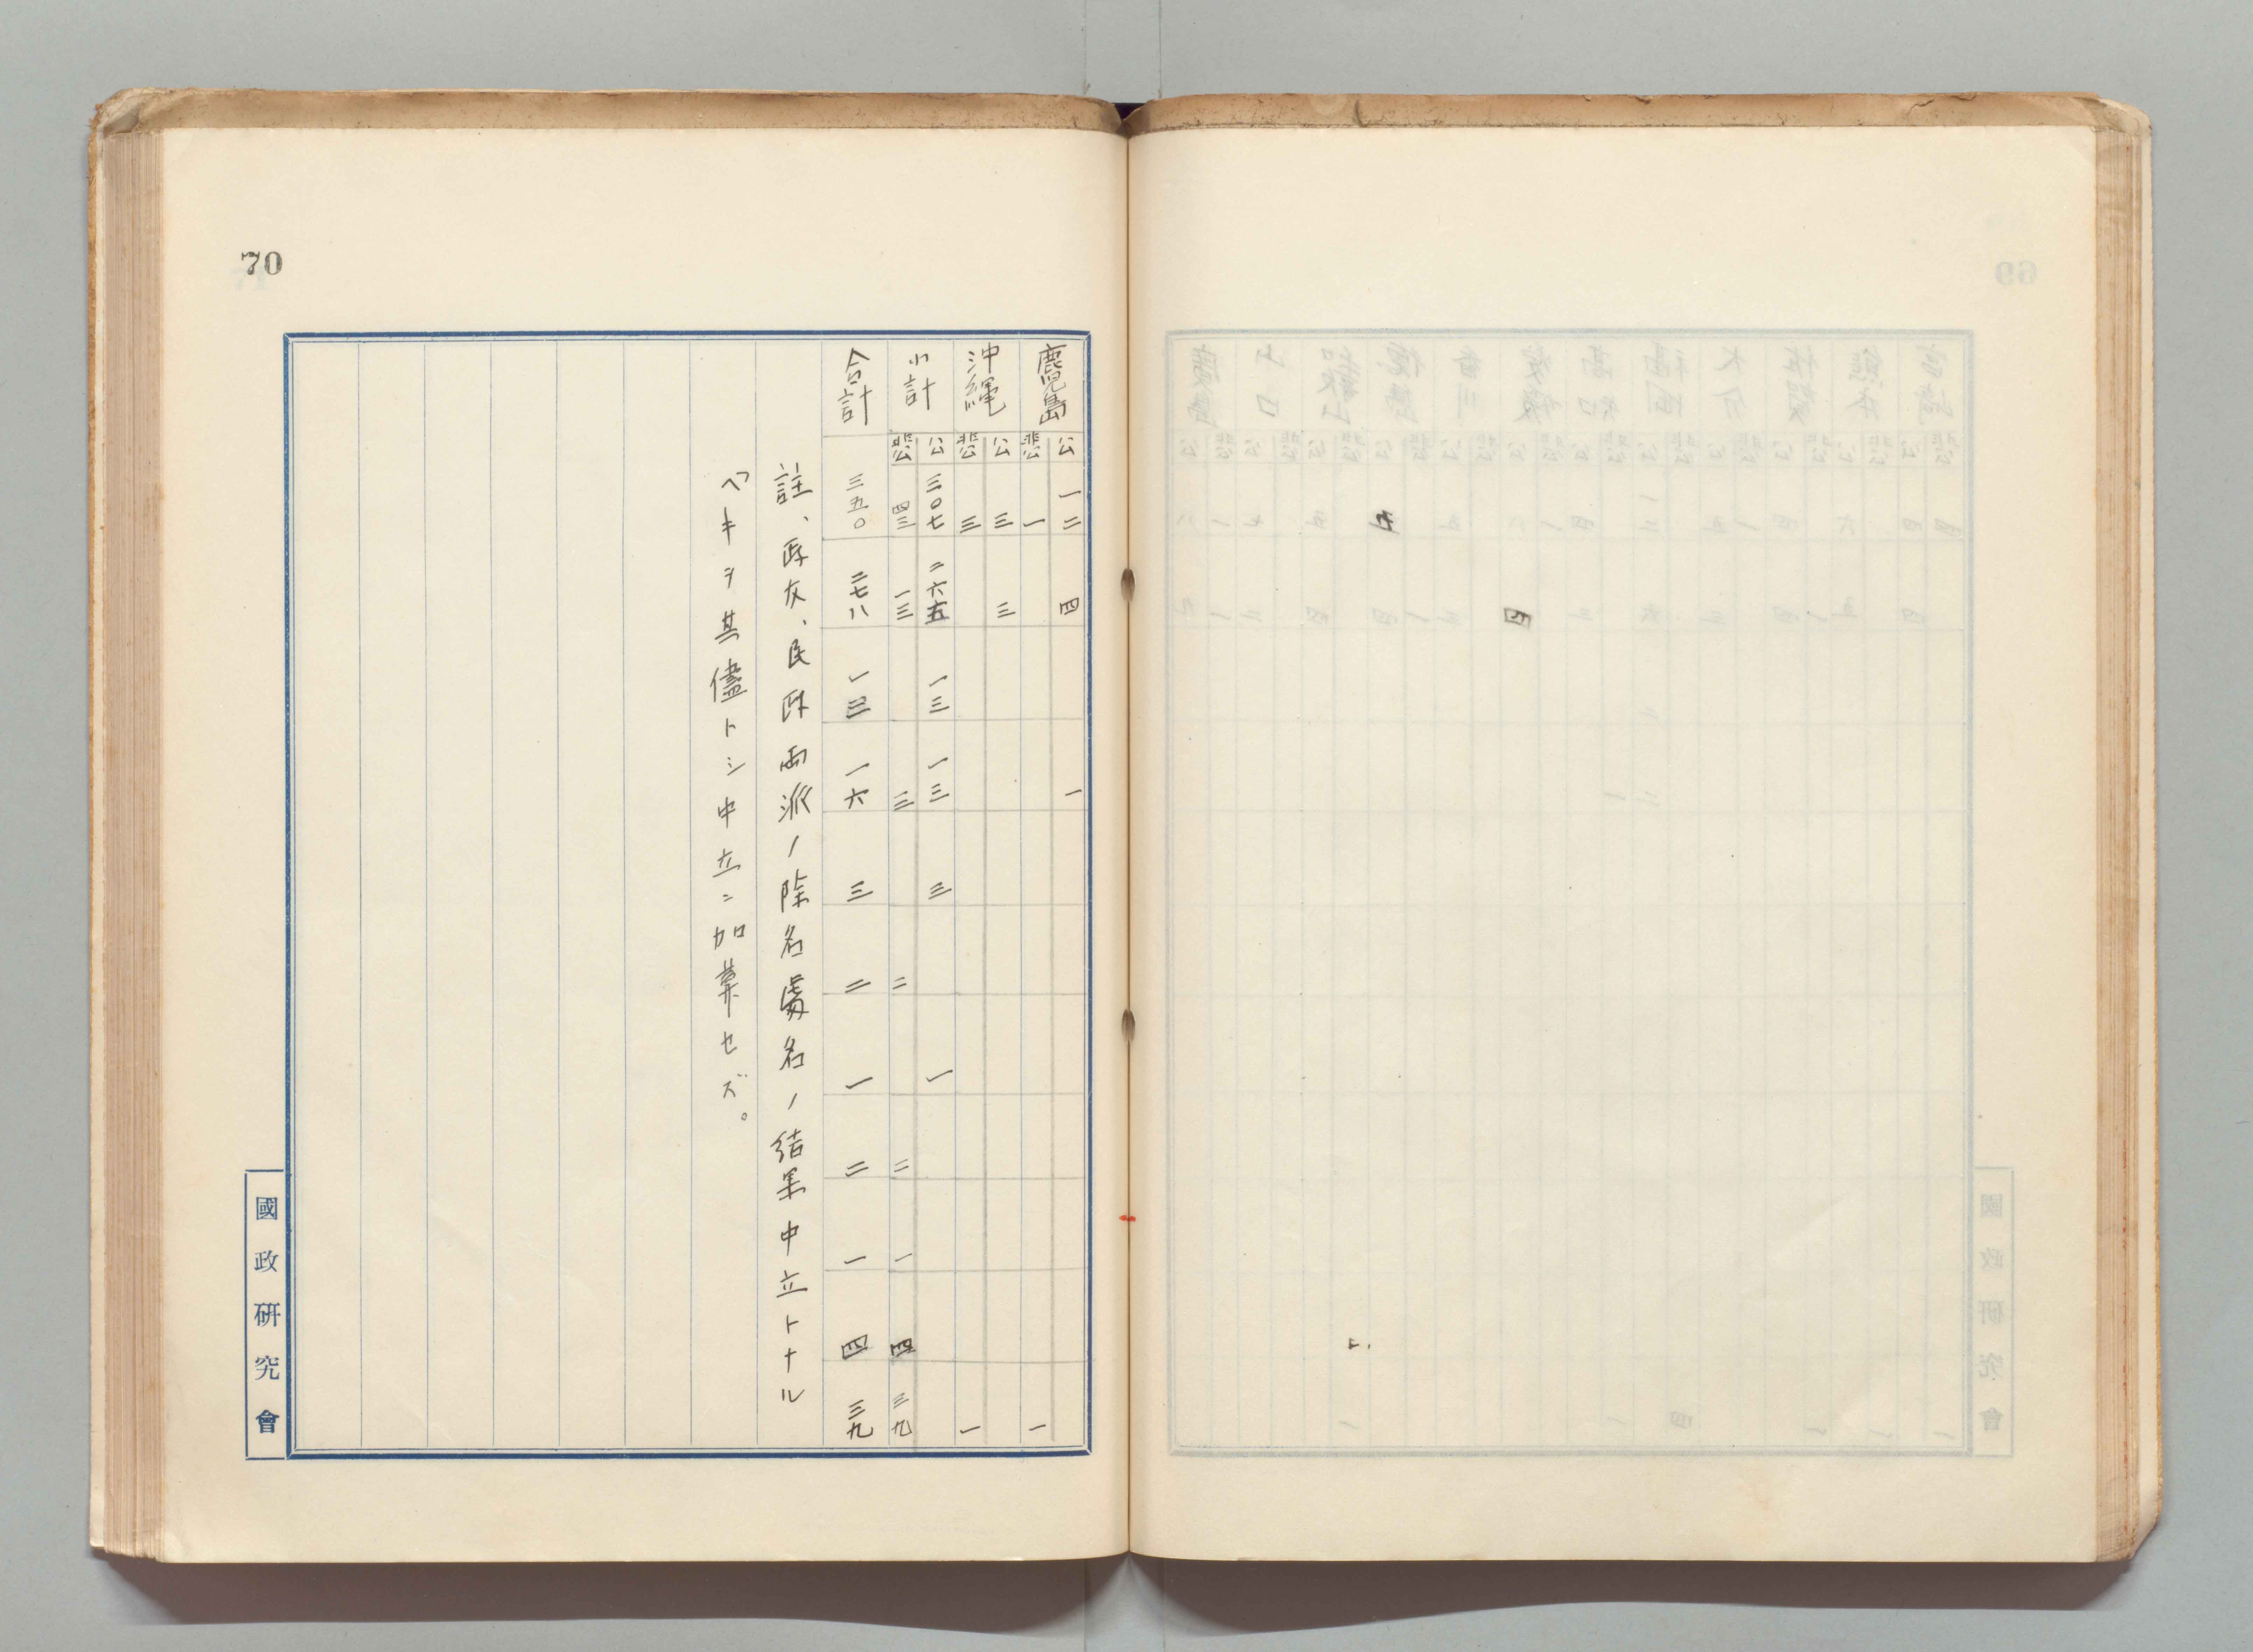 70
鹿児島
公 一二 四 一
非公 一 一
沖縄
公 三 三
非公 三 一
小計
公 三〇七 二六五 一三 一三 三 一
非公 四三 一三 三 二 二 一 四 三九
合計 三五〇 二七八 一三 一六 三 二 一 二 一 四 三九
註、政友、民政両派ノ除名處名ノ結果中立トナル
ベキヲ其儘トシ中立ニ加算セズ。
國政研究會